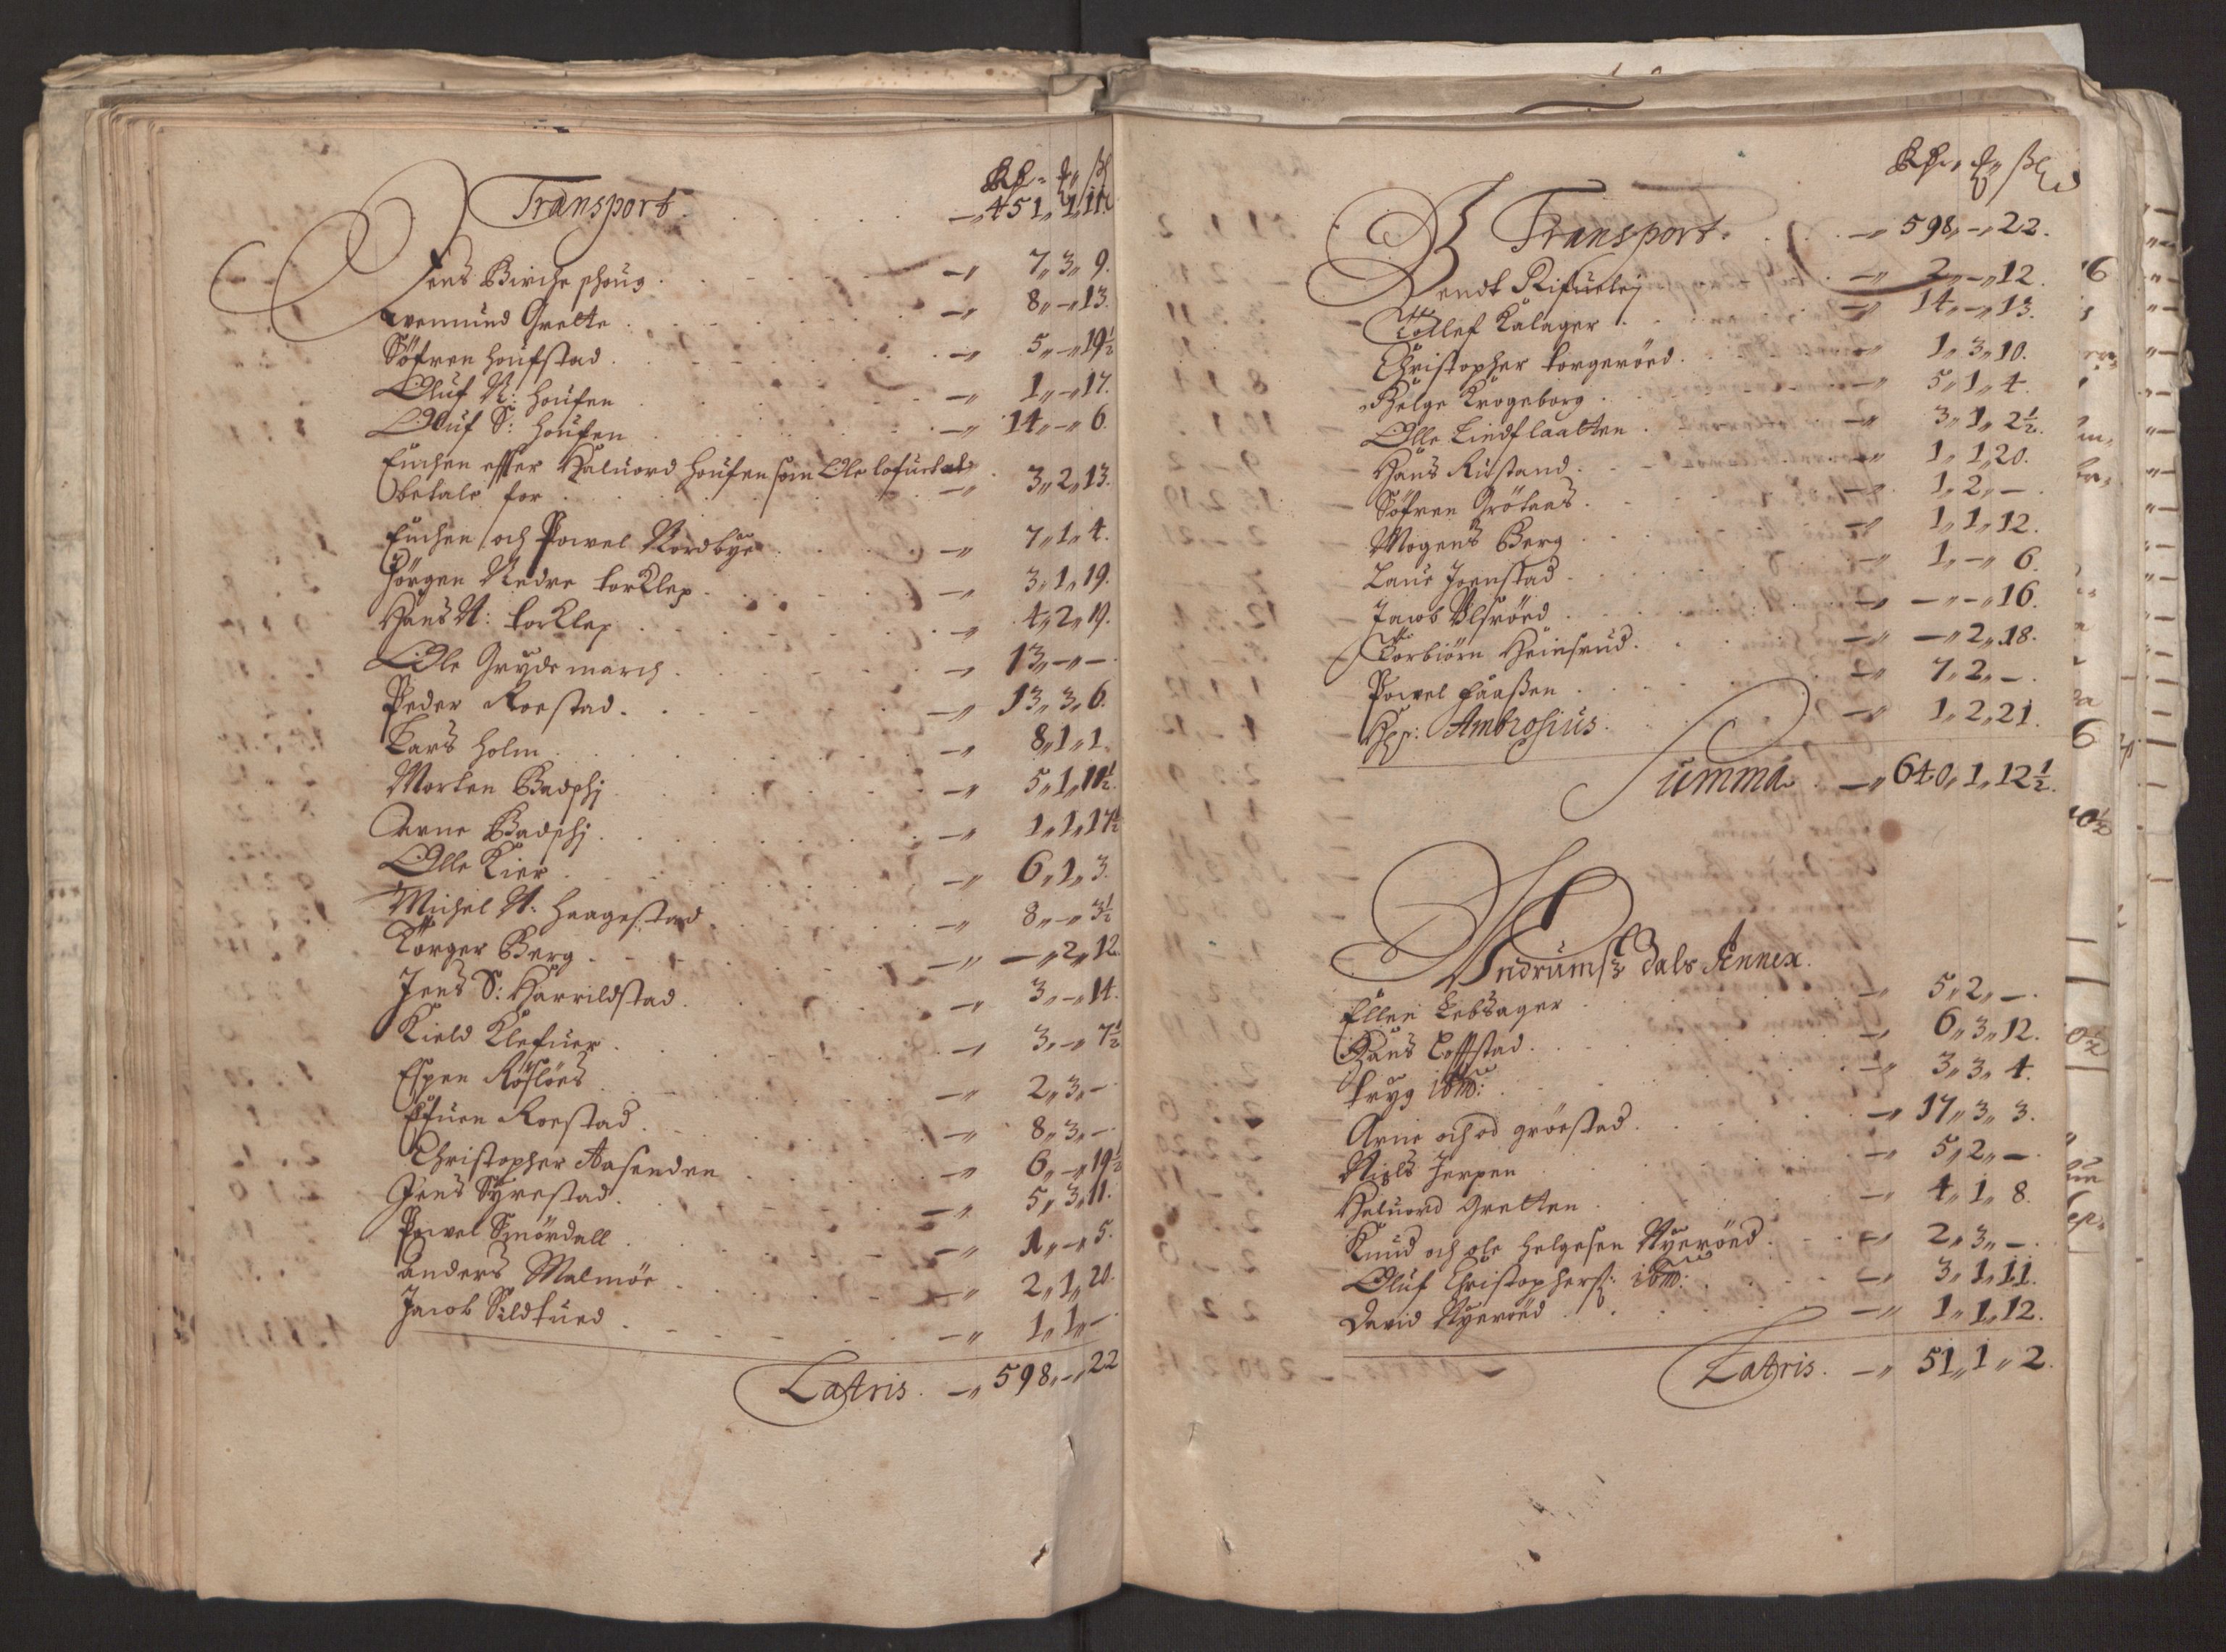 Rd. ort ß
Transport. — 451,, 1,, 11.
Jens Birche shoug. — 7,, 3,, 9.
Evenund Grelte — 8,, -,, 13.
Söfren houfstad. — 5,, -,, 19½
Oluf N: houfen — 1,, -,, 17.
Oluf S: houfen — 14,, -,, 6.
Enchen effter Halvord houfen som Ole
betale for — 3,, 2,, 13.
Enchen och Powel Nordbye — 7,, 1,, 4.
Jörgen Nedre torklep — 3,, 1,, 19.
Hans N: torklep — 4,, 2,, 19.
Ole Grydemarch. — 13,, -,, -.
Peder Roestad. — 13,, 3,, 6.
Lars holm. — 8,, 1,, 1.
Morten Badshj — 5,, 1,, 11½.
Arne Badshj. — 1,, 1,, 17½
Olle Kier — 6,, 1,, 3.
Michel N: haagestad — 8,, -,, 3½
Torger Berg. — -,, 2,, 12.
Jens S: Harrildstad. — 3,, -,, 14.
Kield Klefuer. — 3,, -,, 7½
Espen Röslöes — 2,, 3,, -.
Efuen Roestad. — 8,, 3,, -.
Christopher Aasenden — 6,, -,, 19½
Jens Syrestad. — 5,, 3,, 11.
Powel Smördall — 1,, -,, 5.
Anders Malmöe — 2,, 1,, 20.
Jacob Sildtued — 1,, 1,, -.
Latris. — 598,, -,, 22
Rd. ort ß
Transport. — 598,, -,, 22.
Bendt Rifuelej — 2,, -,, 12.
Tollef Kalager — 14,, -,, 13.
Christopher torgeröed. — 1,, 3,, 10.
Helge Krogeborg — 5,, 1,, 4.
Olle Lindflaatten — 3,, 1,, 2½.
Hans Rustand. — 1,, 1,, 20.
Söfren Grötaas. — 1,, 2,, -.
Mogens Berg — 1,, 1,, 12.
Laue Joenstad — 1,, -,, 6.
Jacob Ulsröed — -,, -,, 16.
Torbiörn Heinsrud. — -,, 2,, 18.
Powel Faaßen — 7,, 2,, -.
Hr: Ambrosius. — 1,, 2,, 21.
Summa. — 640,, 1,, 12½.
Undrumsdals Annex.
Ellen Lebsager — 5,, 2,, -.
Hans Loffstad. — 6,, 3,, 12.
Tryg ibm: — 3,, 3,, 4.
Arne och od gröestad. — 17,, 3,, 3.
Niels Jerpen — 5,, 2,, -.
Haluord Gretten — 4,, 1,, 8.
Knud och ole helgesen Nyeröed. — 2,, 3,, -.
Oluf Christophers: ibm: — 3,, 1,, 11.
David Nyeröed — 1,, 1,, 12.
Latris. — 51,, 1,, 2.